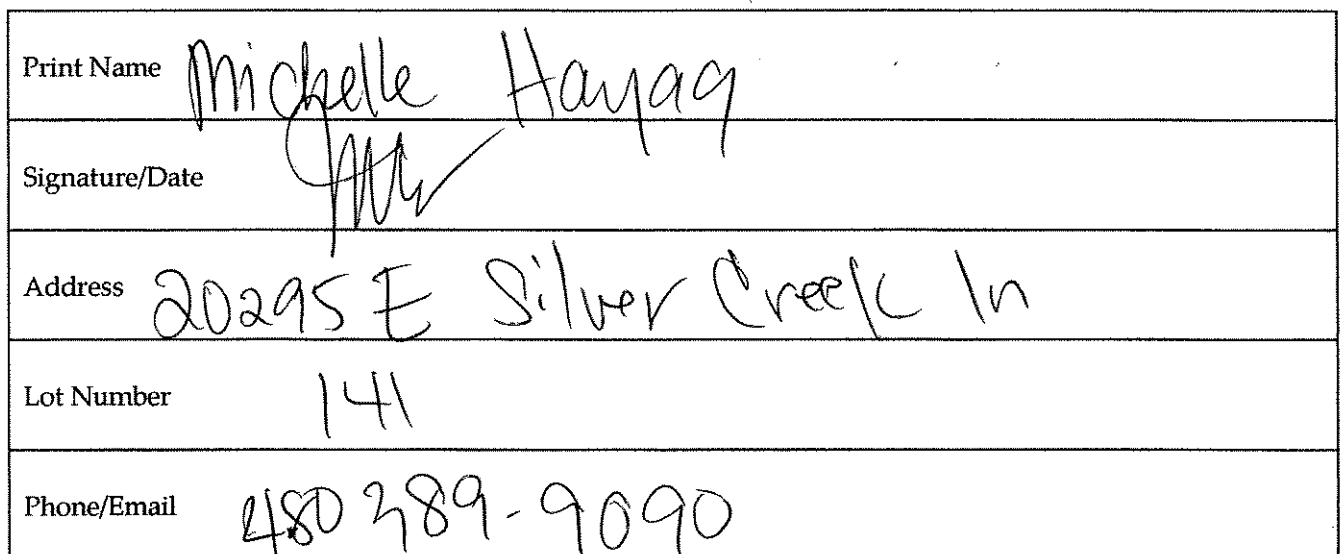 Print Name Michelle Hayag
Signature/Date
Address 20295 E Silver Creek ln
Lot Number 141
Phone/Email 480 389-9090